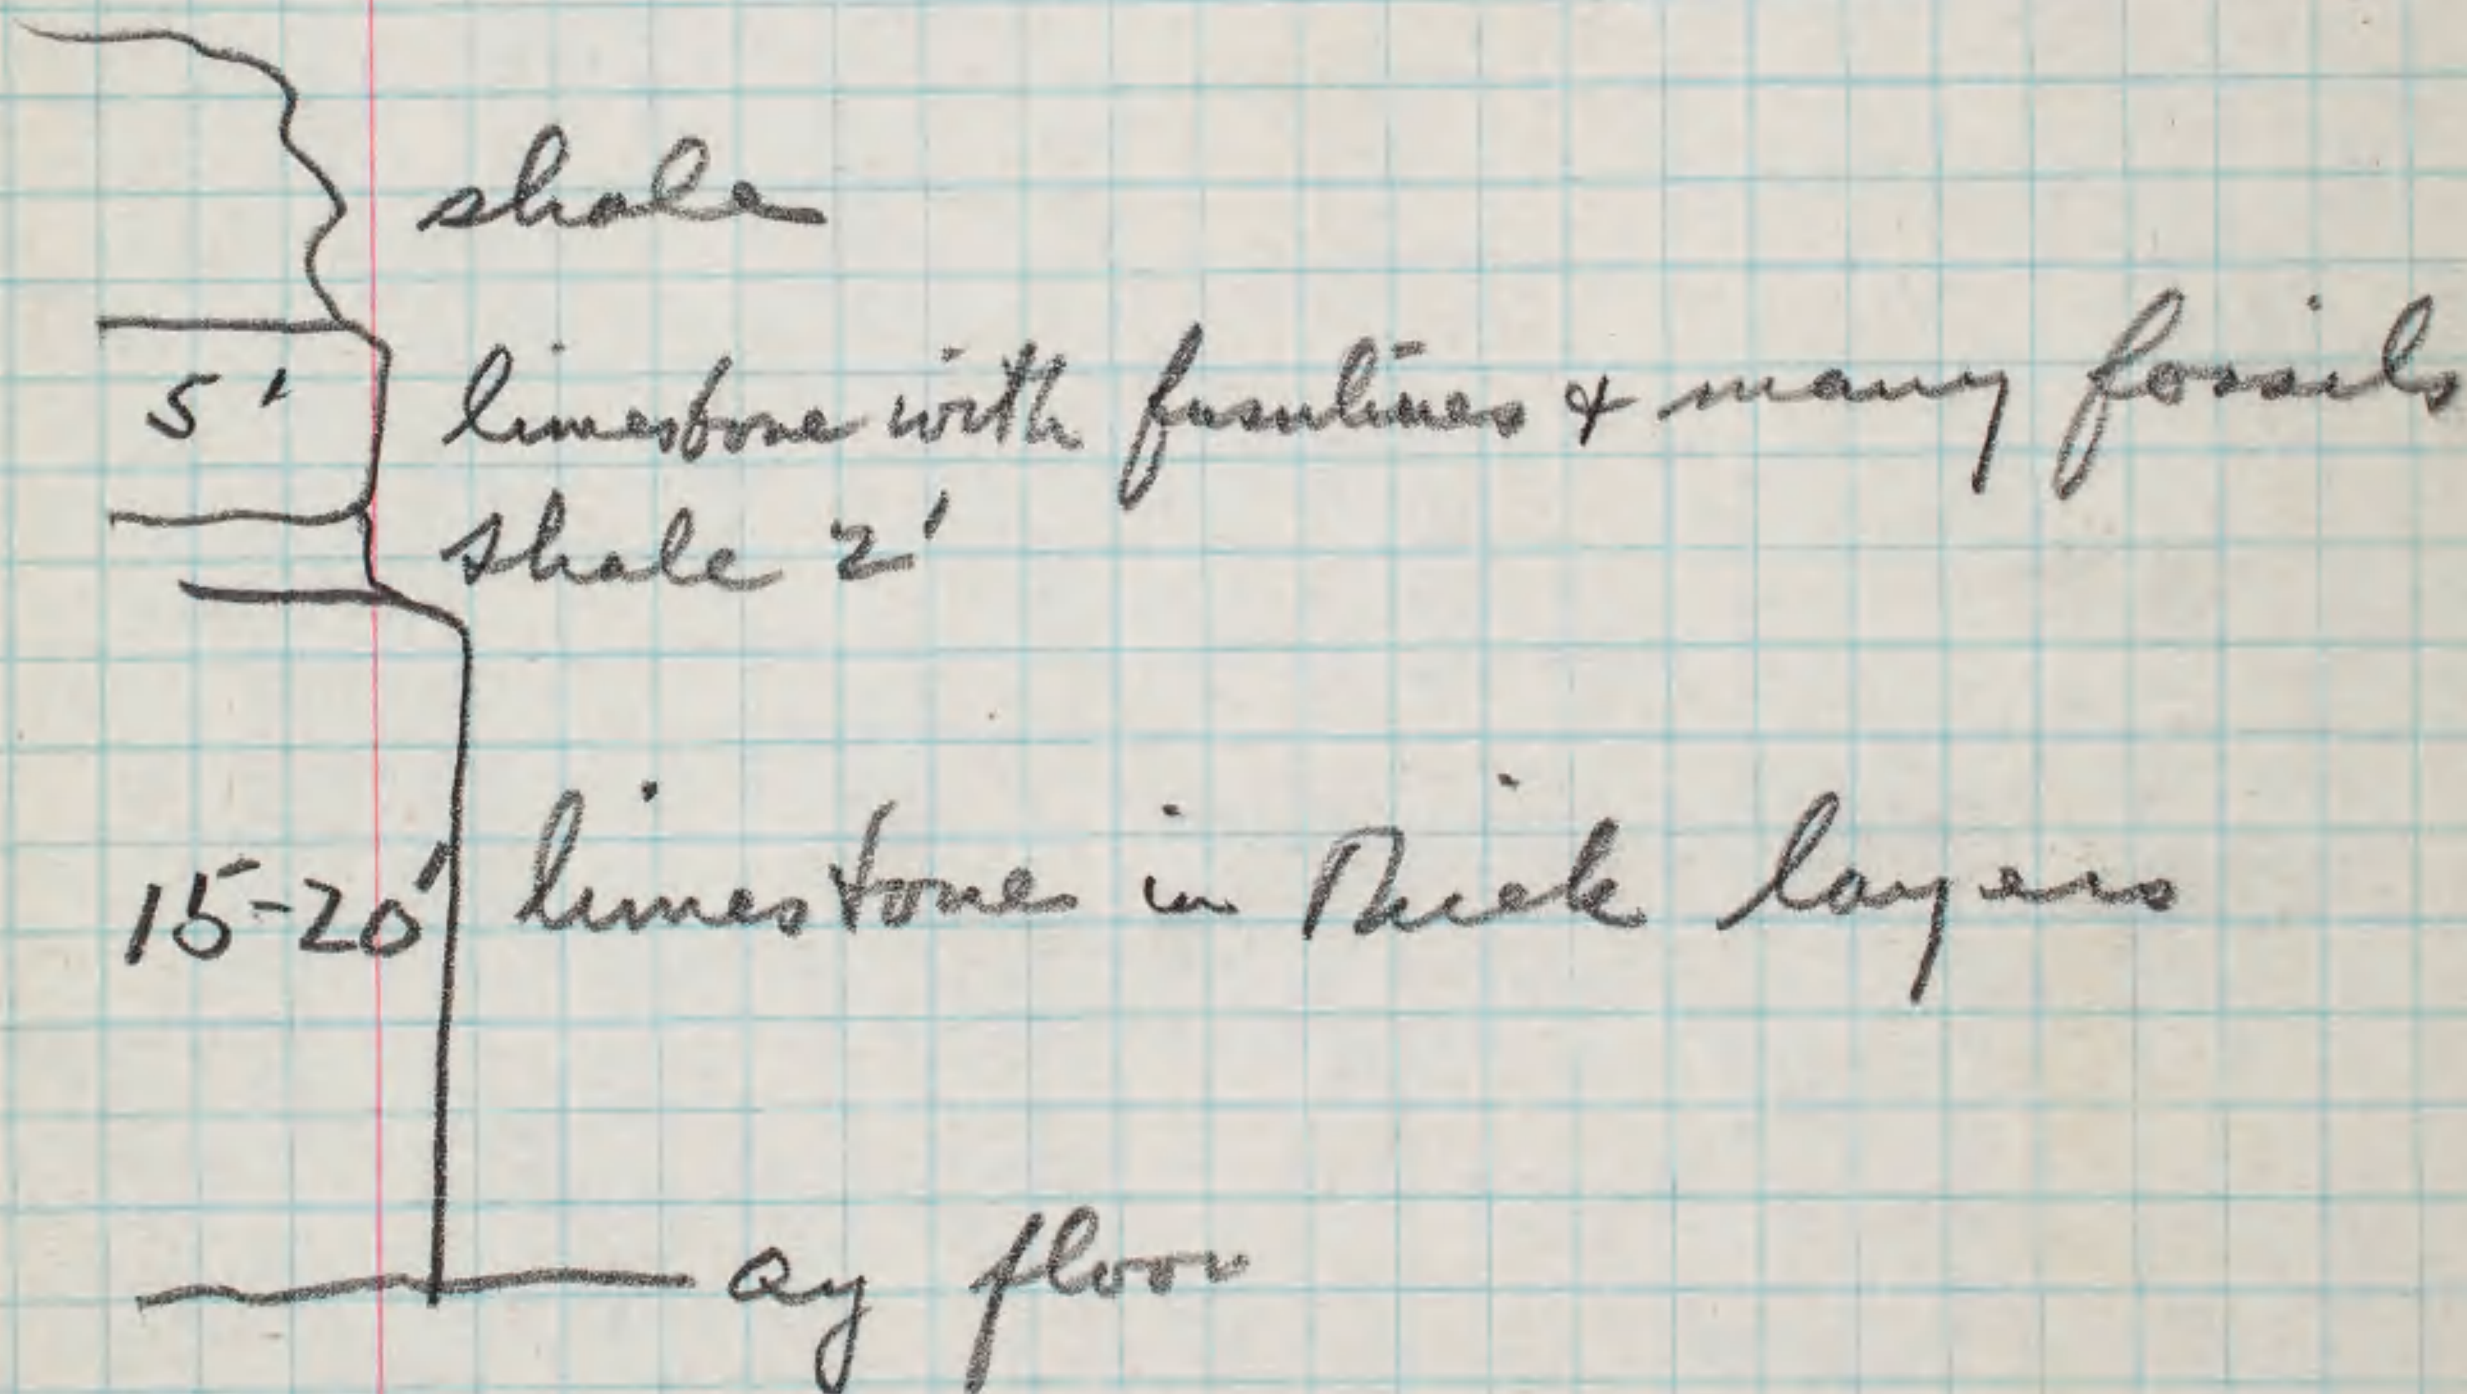 shale
5' limestone with fusulines & many fossils
shale 2'
15-20' limestone in thick layers
qy floor